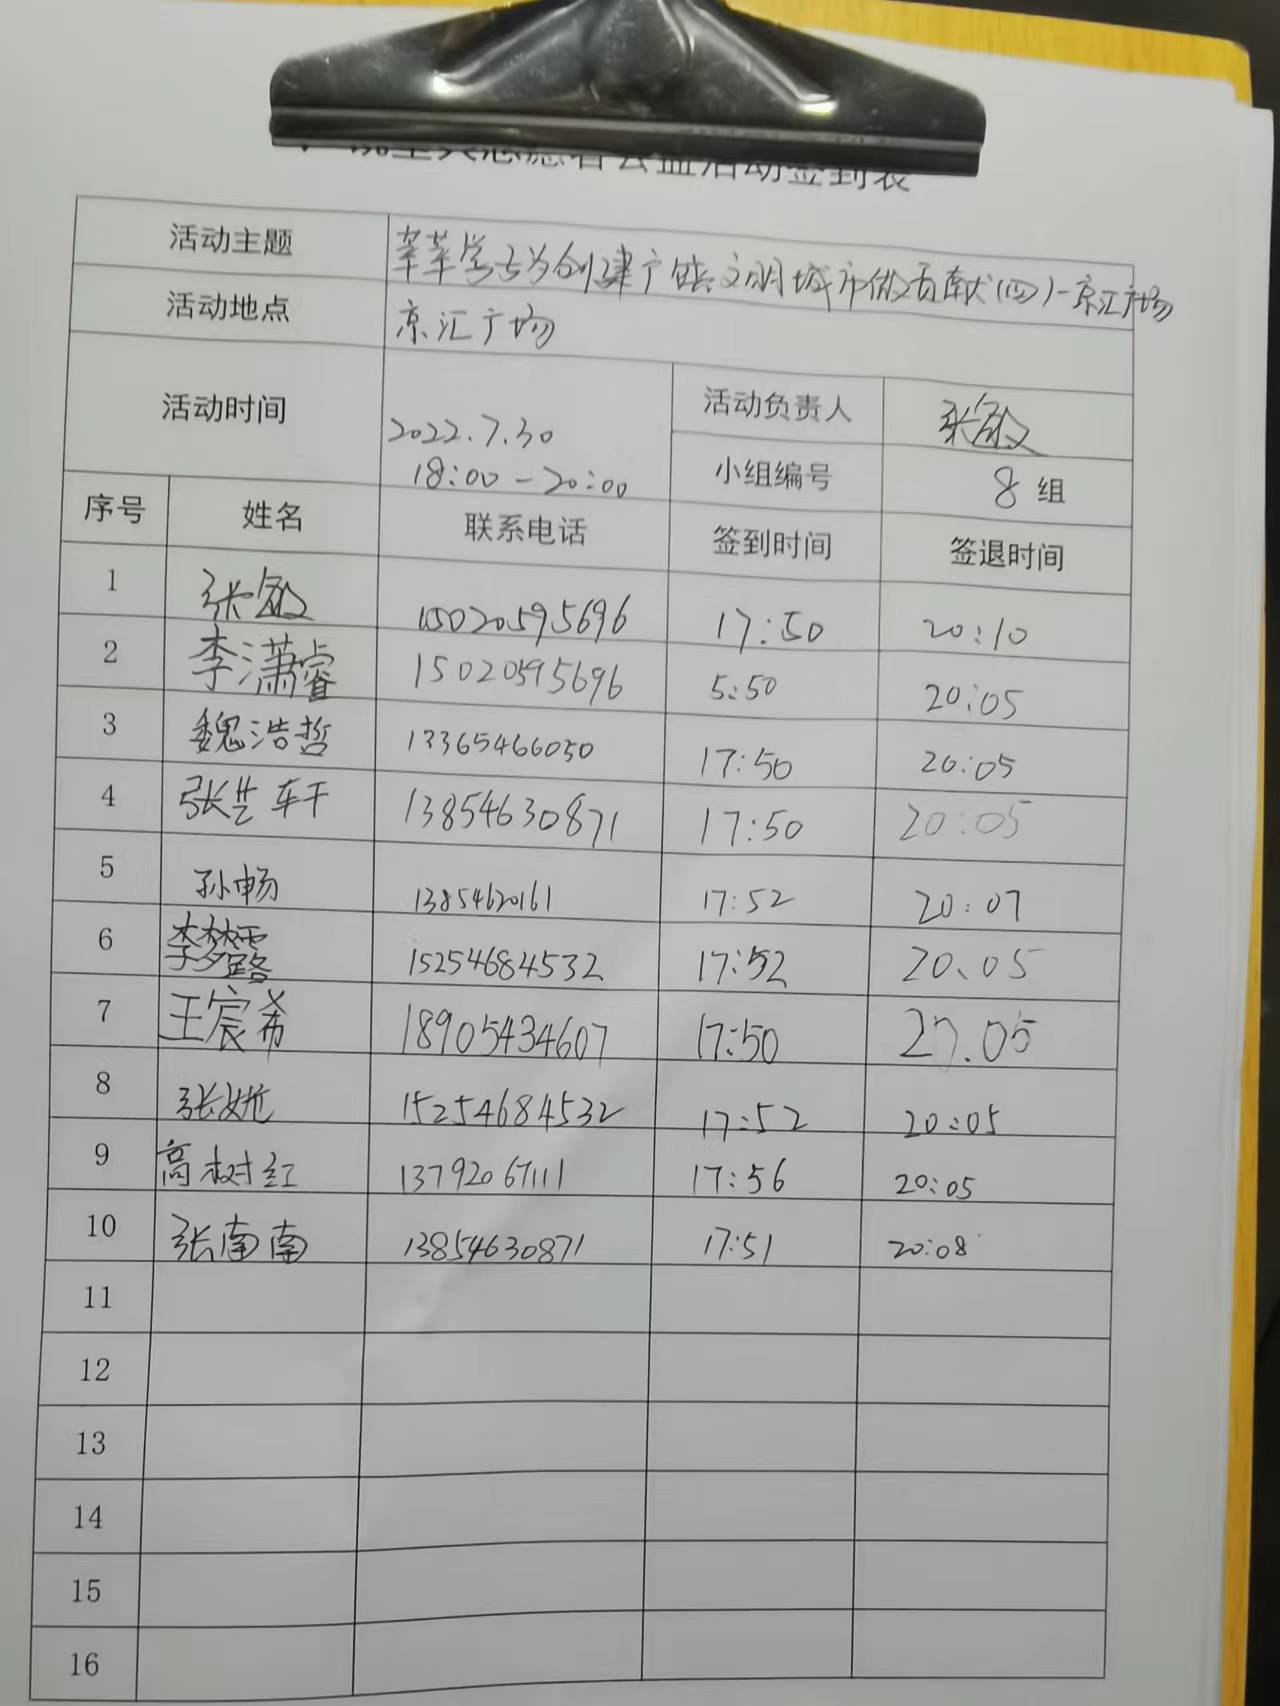 志愿者公益活动签到表
活动主题 莘莘学子为创建广饶文明城市做贡献(四)-京汇广场
活动地点 京汇广场
活动时间 2022.7.30 活动负责人 张敏
18:00-20:00 小组编号 8 组
序号 姓名 联系电话 签到时间 签退时间
1 张敏 15020595696 17:50 20:10
2 李潇睿 15020595696 5:50 20:05
3 魏浩哲 13365466030 17:50 20:05
4 张芸轩 13854630871 17:50 20:05
5 孙畅 13854620161 17:52 20:07
6 李梦露 15254684532 17:52 20.05
7 王宸希 18905434607 17:50 20.05
8 张姚 15254684532 17:52 20:05
9 高树红 13792067111 17:56 20:05
10 张南南 13854630871 17:51 20:08
11
12
13
14
15
16